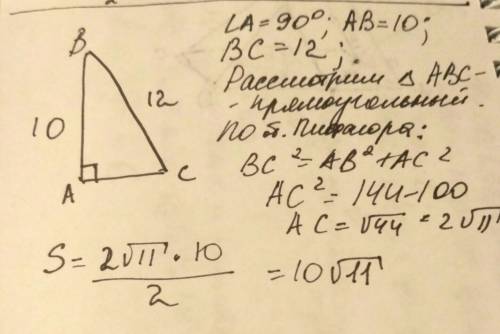 ∠A = 90°; AB = 10;
BC = 12;
Рассмотрим Δ ABC -
- прямоугольный.
По т. Пифагора:
BC² = AB² + AC²
AC² = 144 - 100
AC = √44 = 2√11
B
10
12
A
C
S = 2√11 · 10 / 2 = 10√11